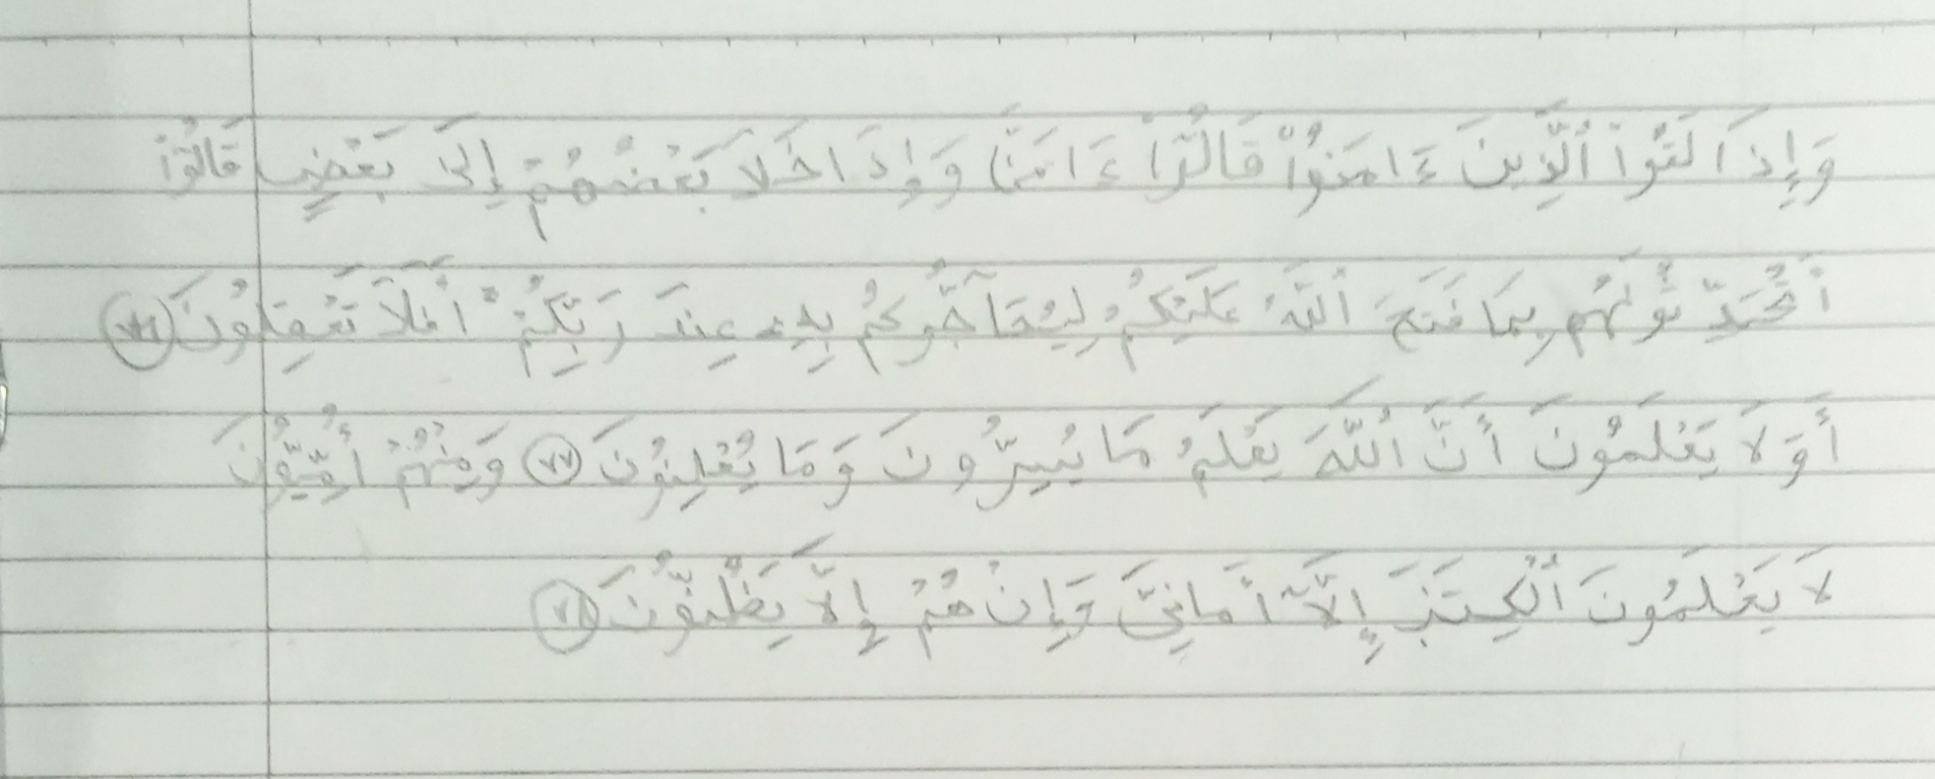 وَإِذَا لَقُوا۟ ٱلَّذِينَ ءَامَنُوا۟ قَالُوٓا۟ ءَامَنَّا وَإِذَا خَلَا بَعْضُهُمْ إِلَىٰ بَعْضٍ قَالُوٓا۟
أَتُحَدِّثُونَهُم بِمَا فَتَحَ ٱللَّهُ عَلَيْكُمْ لِيُحَآجُّوكُم بِهِۦ عِندَ رَبِّكُمْ ۚ أَفَلَا تَعْقِلُونَ ٧٦
أَوَلَا يَعْلَمُونَ أَنَّ ٱللَّهَ يَعْلَمُ مَا يُسِرُّونَ وَمَا يُعْلِنُونَ ٧٧ وَمِنْهُمْ أُمِّيُّونَ
لَا يَعْلَمُونَ ٱلْكِتَـٰبَ إِلَّآ أَمَانِىَّ وَإِنْ هُمْ إِلَّا يَظُنُّونَ ٧٨